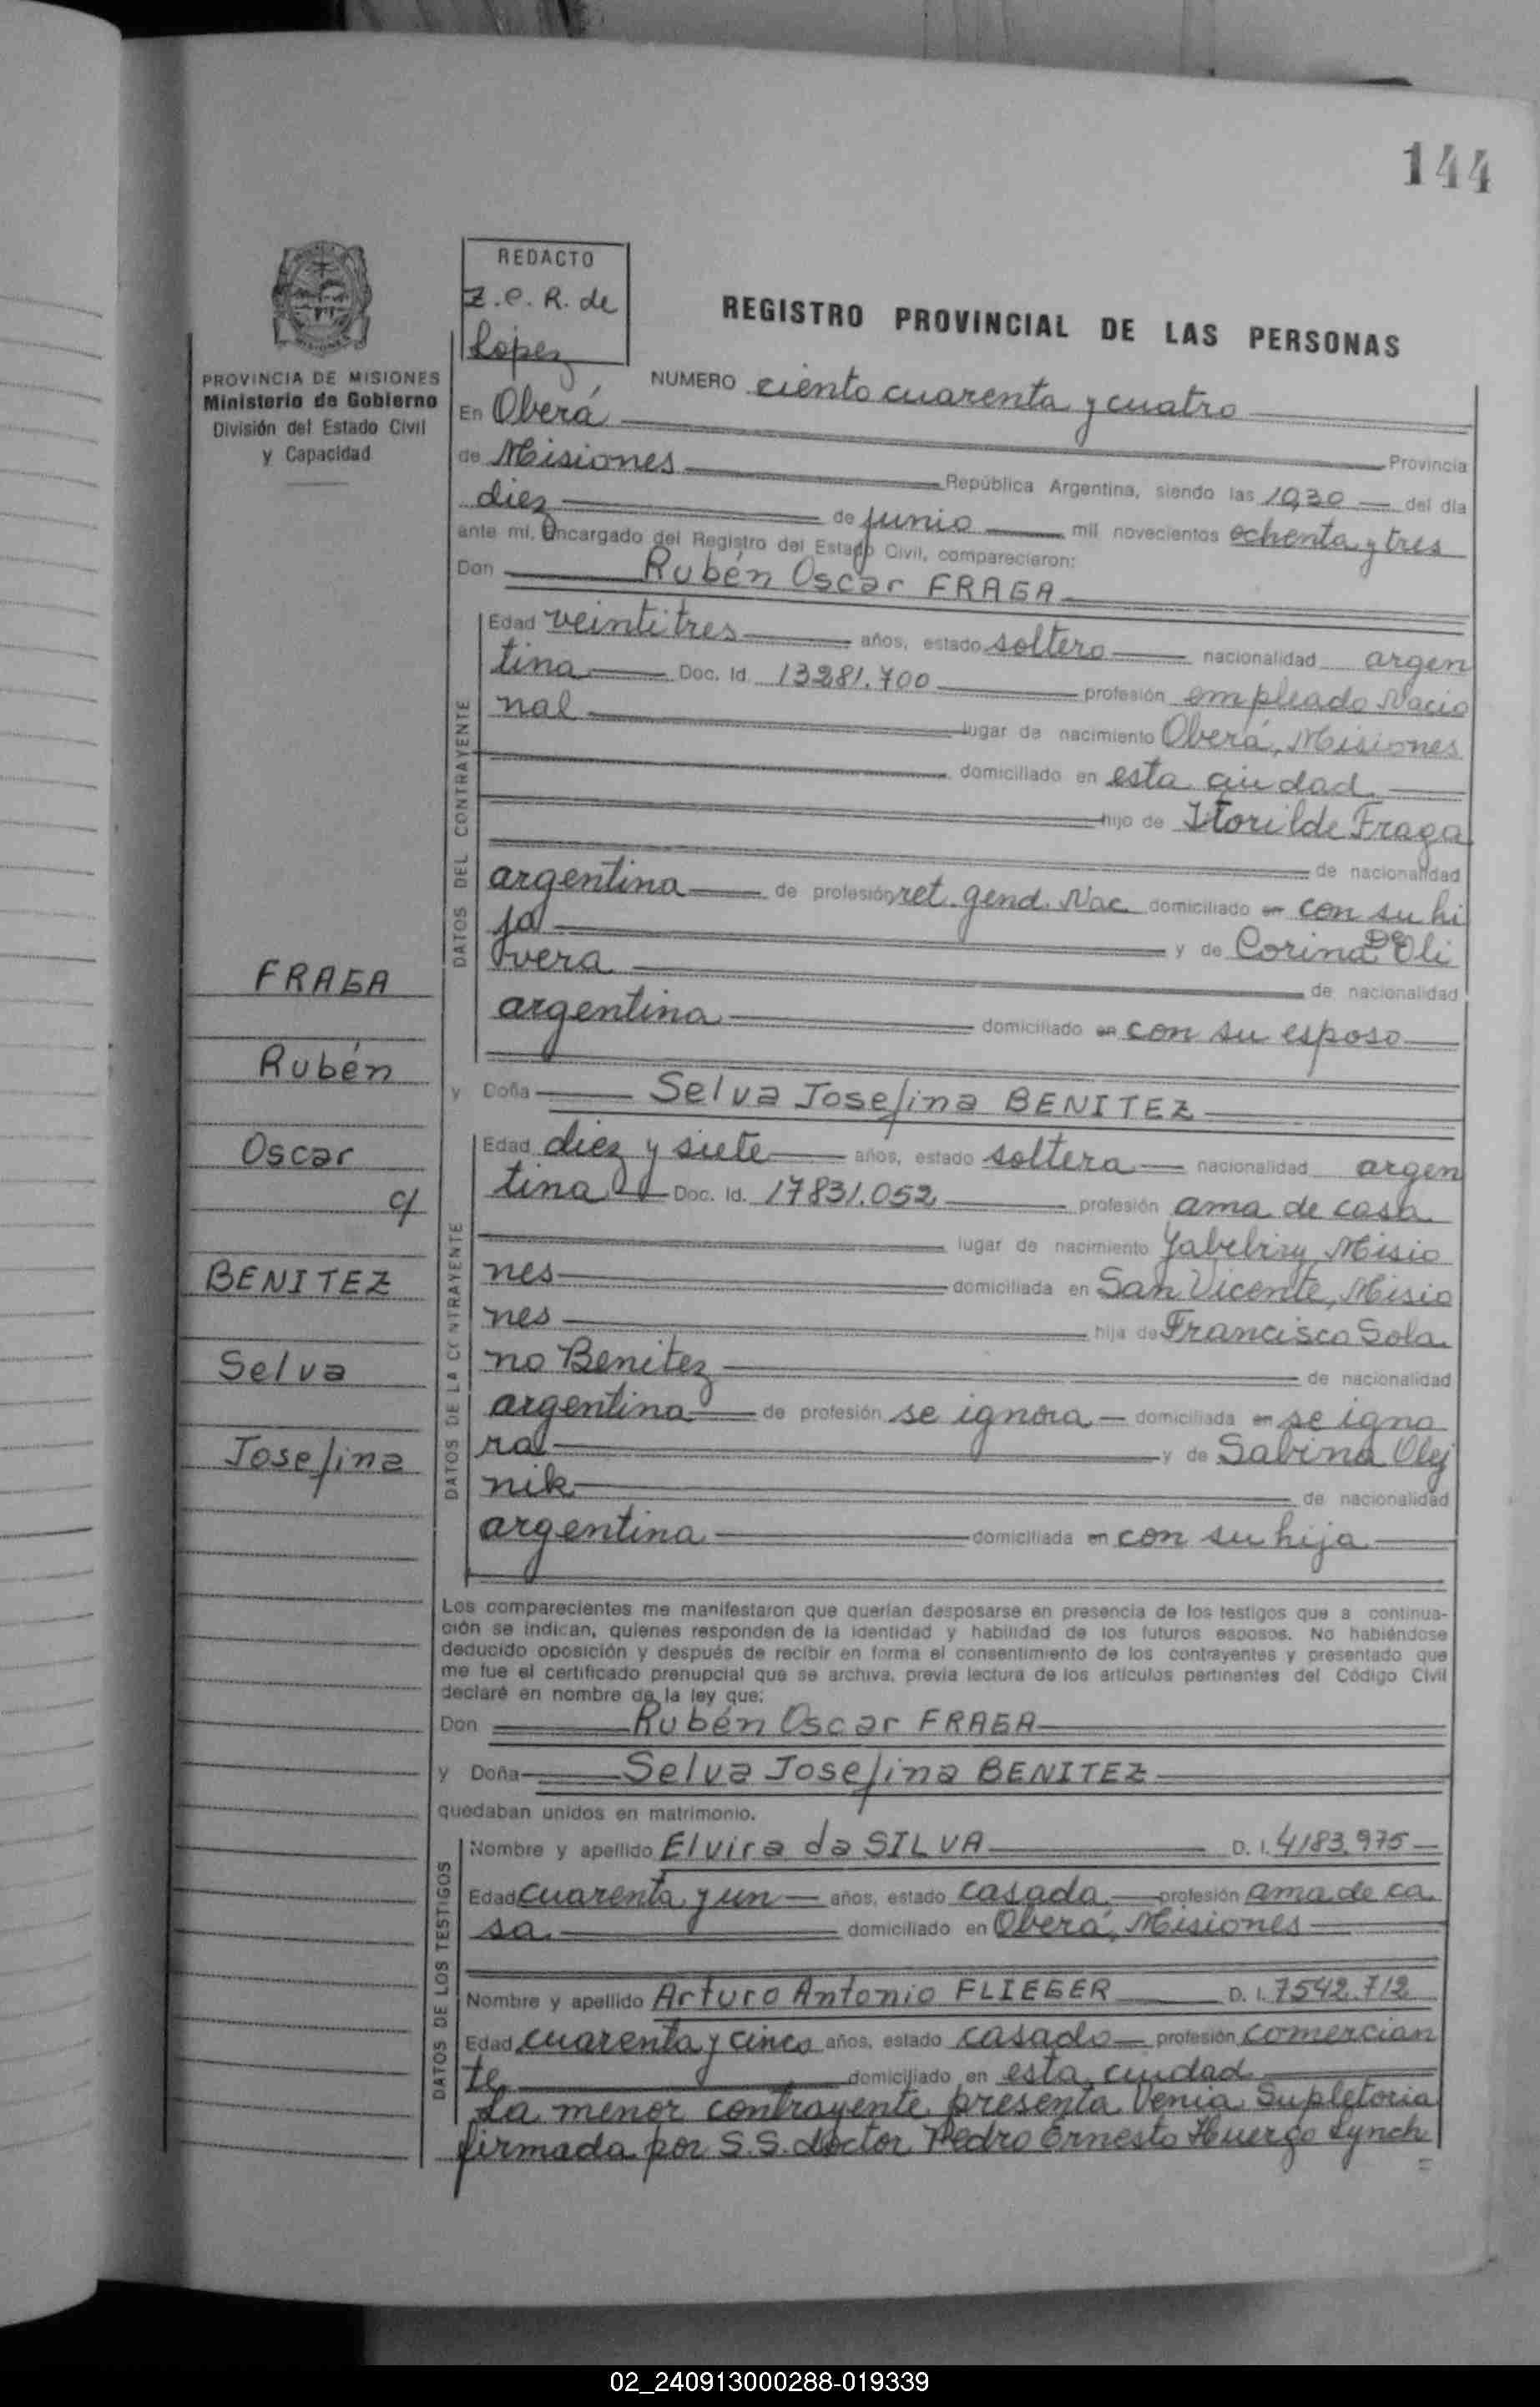 144
REDACTO
Z.C.R. de
Lopez
REGISTRO PROVINCIAL DE LAS PERSONAS
PROVINCIA DE MISIONES
Ministerio de Gobierno
División del Estado Civil
y Capacidad
NUMERO ciento cuarenta y cuatro
En Oberá
Provincia
de Misiones República Argentina, siendo las 10,30 del día
diez de junio mil novecientos ochenta y tres
ante mi, Encargado del Registro del Estado Civil, comparecieron:
Don Rubén Oscar FRAGA
DATOS DEL CONTRAYENTE
Edad veintitres años, estado soltero nacionalidad argen
tina Doc. Id. 13281.700 profesión empleado Nacio
nal lugar de nacimiento Oberá, Misiones
domiciliado en esta ciudad.
hijo de Itorilde Fraga
de nacionalidad
argentina de profesión ret. gend. Nac. domiciliado en con su hi
jo y de Corina De Oli
vera de nacionalidad
argentina domiciliado en con su esposo
y Doña Selva Josefina BENITEZ
DATOS DE LA CONTRAYENTE
Edad diez y siete años, estado soltera nacionalidad argen
tina Doc. Id. 17831.052 profesión ama de casa
lugar de nacimiento Yabebiry, Misio
nes domiciliada en San Vicente, Misio
nes hija de Francisco Sola
no Benitez de nacionalidad
argentina de profesión se ignora domiciliada en se igno
ra y de Sabina Olej
nik de nacionalidad
argentina domiciliada en con su hija
FRAGA
Rubén
Oscar
c/
BENITEZ
Selva
Josefina
Los comparecientes me manifestaron que querían desposarse en presencia de los testigos que a continua-
ción se indican, quienes responden de la identidad y habilidad de los futuros esposos. No habiéndose
deducido oposición y después de recibir en forma el consentimiento de los contrayentes y presentado que
me fue el certificado prenupcial que se archiva, previa lectura de los artículos pertinentes del Código Civil
declaré en nombre de la ley que:
Don Rubén Oscar FRAGA
y Doña Selva Josefina BENITEZ
quedaban unidos en matrimonio.
DATOS DE LOS TESTIGOS
Nombre y apellido Elvira da SILVA D. I. 4183.975
Edad cuarenta y un años, estado casada profesión ama de ca
sa. domiciliado en Oberá, Misiones
Nombre y apellido Arturo Antonio FLIEGER D. I. 7542.712
Edad cuarenta y cinco años, estado casado profesión comercian
te domiciliado en esta ciudad
La menor contrayente presenta Venia Supletoria
firmada por S.S. doctor Pedro Ernesto Huergo Lynch
=
02_240913000288-019339